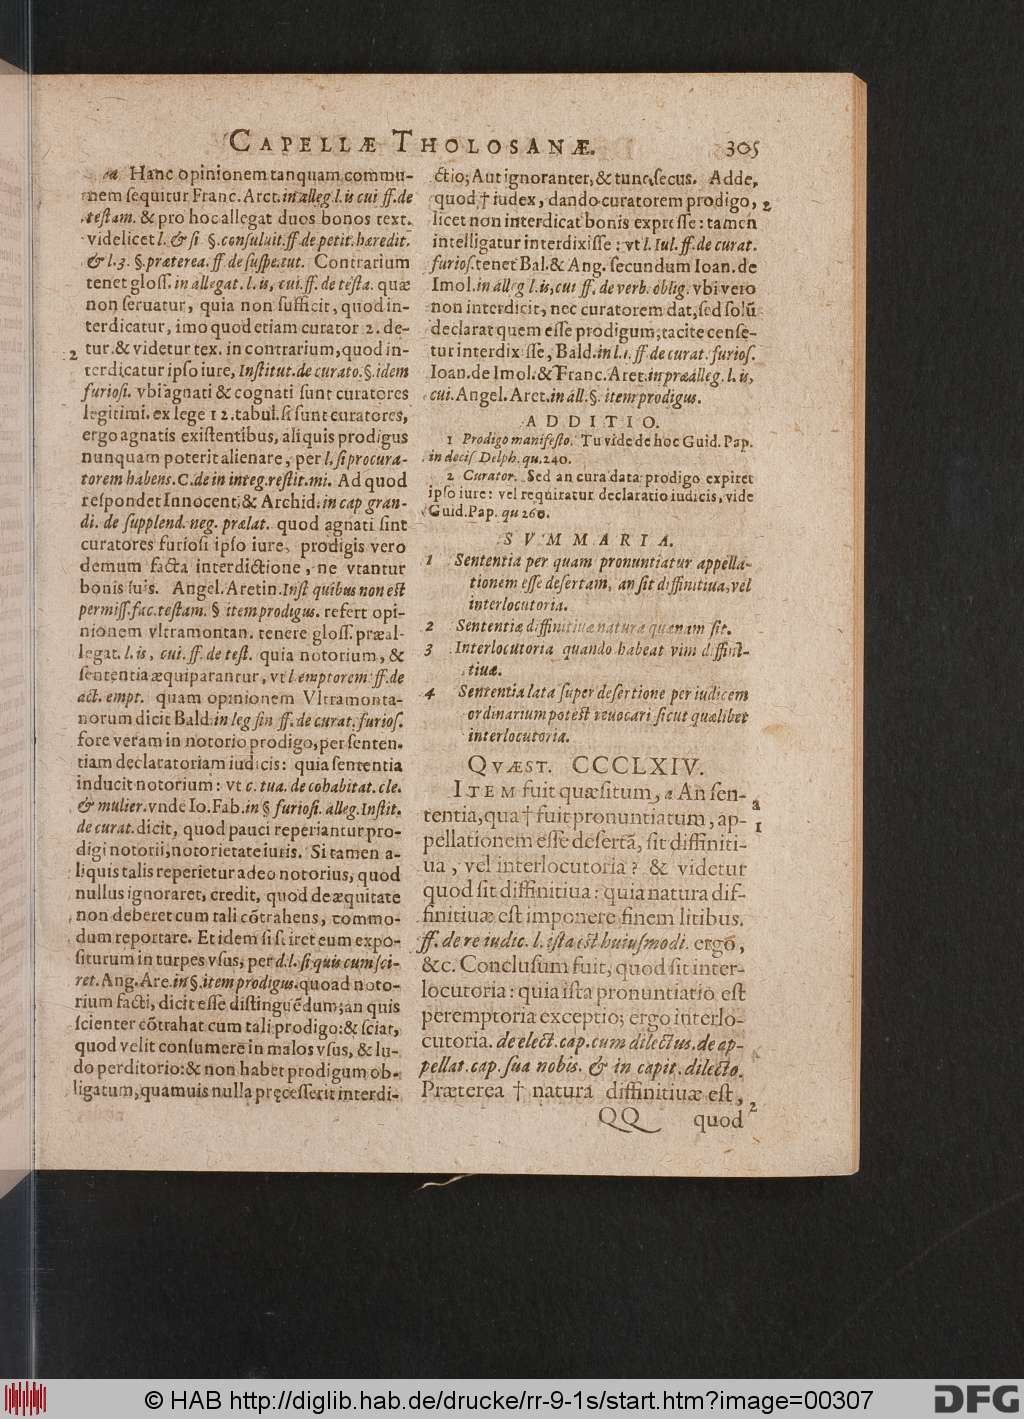 CAPELLÆ THOLOSANÆ. 305
Hanc opinionem tanquam commu-
nem ſequitur Franc. Aret. in alleg l. is cui ff. de
teſtam. & pro hoc allegat duos bonos text.
videlicet l. & ſi §. conſuluit. ff. de petit. hæredit.
& l. 3. §. præterea. ff de ſuſpe. tut. Contrarium
tenet gloſſ. in allegat. l. is, cui. ff. de teſta. quæ
non ſeruatur, quia non ſufficit, quod in-
terdicatur, imo quod etiam curator 2. de-
tur. & videtur tex. in contrarium, quod in-
2
terdicatur ipſo iure, Inſtitut. de curato. §. idem
furioſi. vbi agnati & cognati ſunt curatores
legitimi. ex lege 12. tabul. ſi ſunt curatores,
ergo agnatis exiſtentibus, aliquis prodigus
nunquam poterit alienare, per l. ſi procura-
torem habens. C. de in integ. reſtit. mi. Ad quod
reſpondet Innocent. & Archid. in cap gran-
di. de ſupplend. neg. prælat. quod agnati ſint
curatores furioſi ipſo iure, prodigis vero
demum facta interdictione, ne vtantur
bonis ſuis. Angel. Aretin. Inſt quibus non eſt
permiſſ. fac. teſtam. § item prodigus. refert opi-
nionem vltramontan. tenere gloſſ. præal-
legat. l. is, cui. ff. de teſt. quia notorium, &
ſententia æquiparantur, vt l emptorem ff. de
act. empt. quam opinionem Vltramonta-
norum dicit Bald. in leg fin ff. de curat. furioſ.
fore veram in notorio prodigo, per ſenten-
tiam declaratoriam iudicis: quia ſententia
inducit notorium: vt c. tua. de cohabitat. cle.
& mulier. vnde Io. Fab. in § furioſi. alleg. Inſtit.
de curat. dicit, quod pauci reperiantur pro-
digi notorii, notorietate iuris. Si tamen a-
liquis talis reperietur adeo notorius, quod
nullus ignoraret, credit, quod de æquitate
non deberet cum tali cõtrahens, commo-
dum reportare. Et idem ſi ſciret eum expo-
ſiturum in turpes vſus, per d. l. ſi quis cum ſci-
ret. Ang. Are. in §. item prodigus. quoad noto-
rium facti, dicit eſſe diſtinguẽdum; an quis
ſcienter cõtrahat cum tali prodigo: & ſciat,
quod velit conſumere in malos vſus, & lu-
do perditorio: & non habet prodigum ob-
ligatum, quamuis nulla pręceſſerit interdi-
ctio; Aut ignoranter, & tunc ſecus. Adde,
quod † iudex, dando curatorem prodigo, 2
licet non interdicat bonis expreſſe: tamen
intelligatur interdixiſſe: vt l. Iul. ff. de curat.
furioſ. tenet Bal. & Ang. ſecundum Ioan. de
Imol. in alleg l. is, cui ff. de verb. oblig. vbi vero
non interdicit, nec curatorem dat, ſed ſolũ
declarat quem eſſe prodigum; tacite cenſe-
tur interdixiſſe, Bald. in l. 1. ff de curat. furioſ.
Ioan. de Imol. & Franc. Aret. in præalleg. l. is,
cui. Angel. Aret. in all. §. item prodigus.
ADDITIO.
1 Prodigo manifeſto. Tu vide de hoc Guid. Pap.
in deciſ Delph. qu. 240.
2 Curator. Sed an cura data prodigo expiret
ipſo iure: vel requiratur declaratio iudicis, vide
Guid. Pap. qu 260.
SVMMARIA.
1 Sententia per quam pronuntiatur appella-
tionem eſſe deſertam, an ſit diffinitiua, vel
interlocutoria.
2 Sententiæ diffinitiuæ natura quænam ſit.
3 Interlocutoria quando habeat vim diffini-
tiuæ.
4 Sententia lata ſuper deſertione per iudicem
ordinarium poteſt reuocari ſicut quælibet
interlocutoria.
QVÆST. CCCCLXIV.
ITEM fuit quæſitum, a An ſen-
a
tentia, qua † fuit pronuntiatum, ap-
1
pellationem eſſe deſertã, ſit diffiniti-
ua, vel interlocutoria? & videtur
quod ſit diffinitiua: quia natura dif-
finitiuæ eſt imponere finem litibus.
ff. de re iudic. l. iſta eſt huiuſmodi. ergo,
&c. Concluſum fuit, quod ſit inter-
locutoria: quia iſta pronuntiatio eſt
peremptoria exceptio; ergo interlo-
cutoria. de elect. cap. cum dilectus. de ap-
pellat. cap. ſua nobis. & in capit. dilecto.
Præterea † natura diffinitiuæ eſt,
2
QQ quod
© HAB http://diglib.hab.de/drucke/rr-9-1s/start.htm?image=00307
DFG